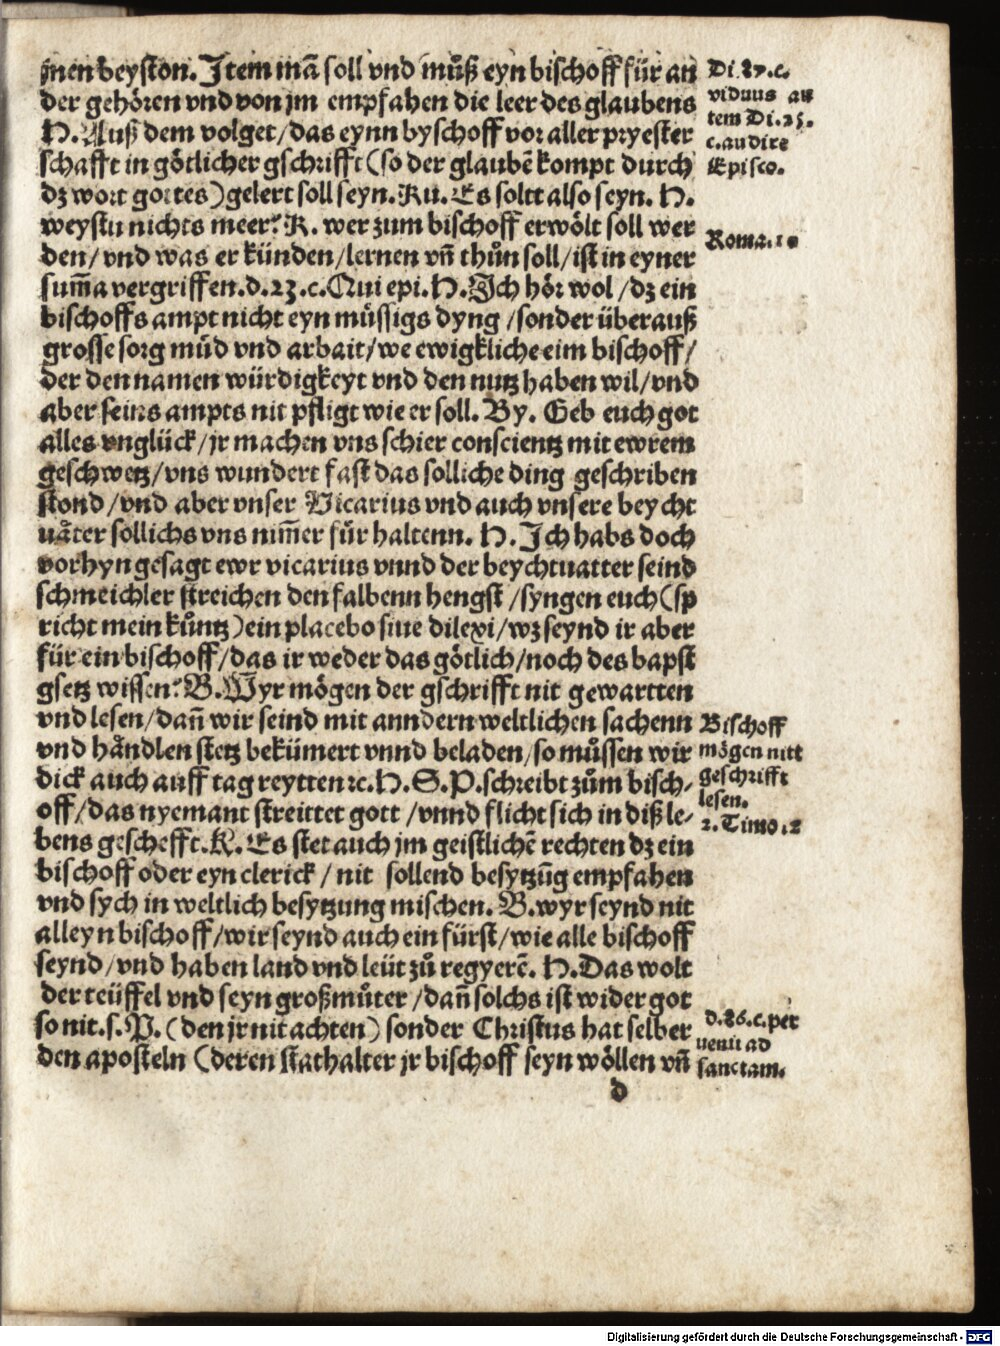 jnen beyston. Item mā soll vnd můß eyn bischoff für an
der gehören vnd von jm empfahen die leer des glaubens
H. Auß dem volget/das eynn byschoff vor aller pryester
schafft in götlicher gschrifft (so der glaubē kompt durch
dz wort gottes) gelert soll seyn. Ku. Es soltt also seyn. H.
weystu nichts meer? K. wer zum bischoff erwölt soll wer
den/ vnd was er künden/lernen vñ thůn soll/ist in eyner
sum̄a vergriffen. d. 23. c. Qui epi. H. Ich hör wol/dz ein
bischoffs ampt nicht eyn müssigs dyng/sonder überauß
grosse sorg müd vnd arbait/we ewigkliche eim bischoff/
der den namen würdigkeyt vnd den nutz haben wil/vnd
aber seins ampts nit pfligt wie er soll. By. Geb euch got
alles vnglück/jr machen vns schier conscientz mit ewrem
geschwetz/vns wundert fast das solliche ding geschriben
stond/vnd aber vnser Vicarius vnd auch vnsere beycht
uåter sollichs vns nim̄er für haltenn. H. Ich habs doch
vorhyn gesagt ewr vicarius vnnd der beychtuatter seind
schmeichler streichen den falbenn hengst/syngen euch (sp
richt mein kůntz) ein placebo siue dilexi/wz seynd ir aber
für ein bischoff/das ir weder das götlich/noch des bapst
gsetz wissen? B. Wyr mögen der gschrifft nit gewartten
vnd lesen/dañ wir seind mit anndern weltlichen sachenn
vnd håndlen stetz bekümert vnnd beladen/so můssen wir
dick auch auff tag reytten ꝛc. H. S. P. schreibt zům bisch-
off/das nyemant streittet gott/vnnd flicht sich in diß le-
bens geschefft. K. Es stet auch jm geistlichē rechten dz ein
bischoff oder eyn clerick/ nit sollend besytzūg empfahen
vnd sych in weltlich besytzung mischen. B. wyr seynd nit
alleyn bischoff/wir seynd auch ein fürst/wie alle bischoff
seynd/vnd haben land vnd leüt zů regyerē. H. Das wolt
der teüffel vnd seyn großmůter/dañ solchs ist wider got
so nit. s. P. (den jr nit achten) sonder Christus hat selber
den aposteln (deren stathalter jr bischoff seyn wöllen vñ
d
Di. 87. c.
viduus au
tem Di. 25.
c. audire
Episco.
Roma. 10
Bischoff
mögen nitt
geschrifft
lesen.
2. Timo. 2
d. 86. c. per
uenit ad
sanctam.
Digitalisierung gefördert durch die Deutsche Forschungsgemeinschaft - DFG